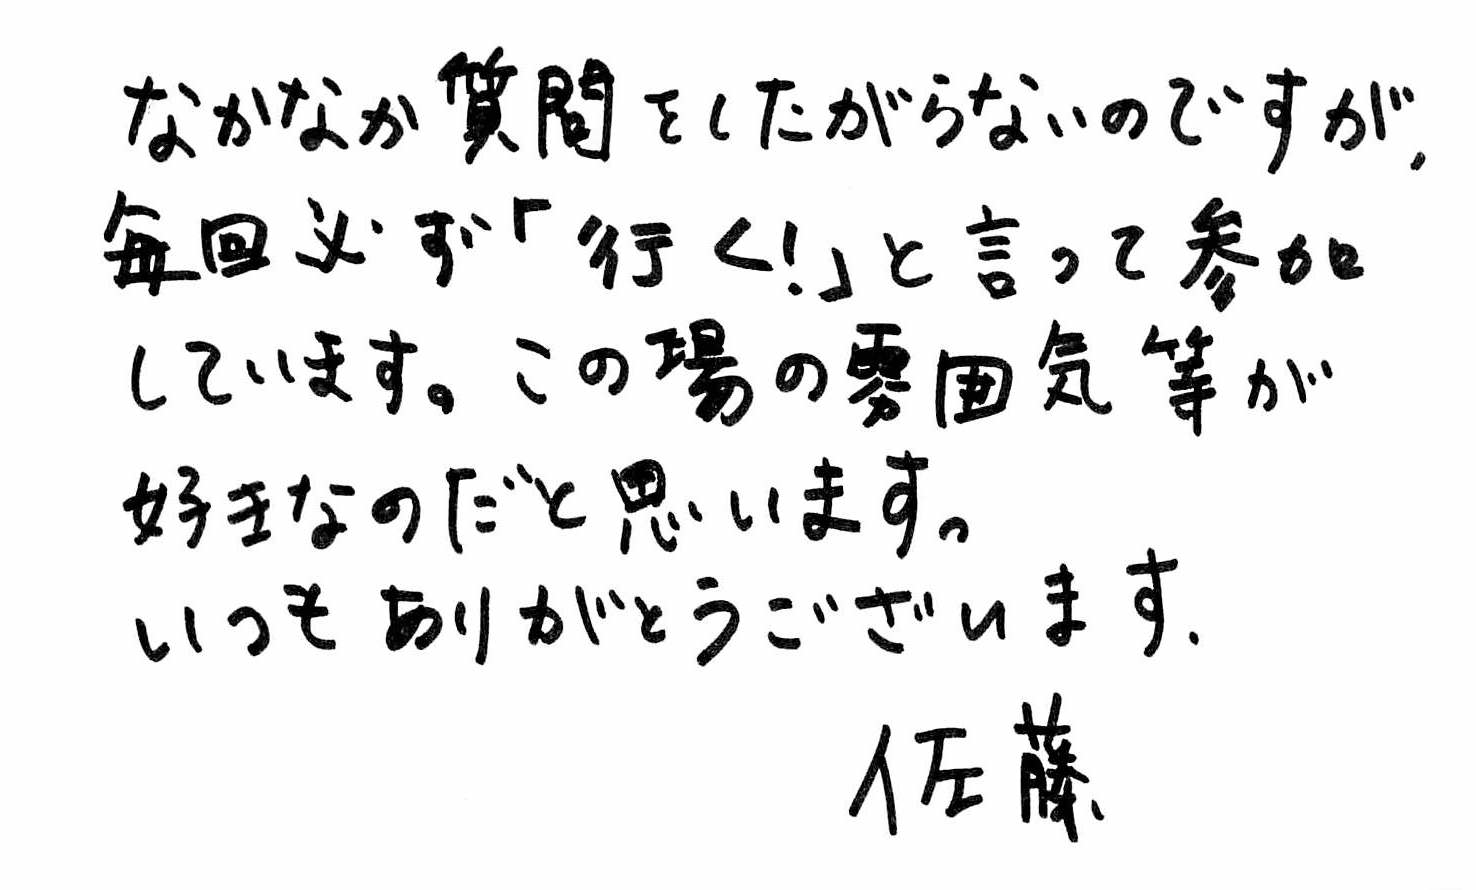 なかなか質問をしたがらないのですが、
毎回必ず「行く!」と言って参加
しています。この場の雰囲気等が
好きなのだと思います。
いつもありがとうございます.
佐藤